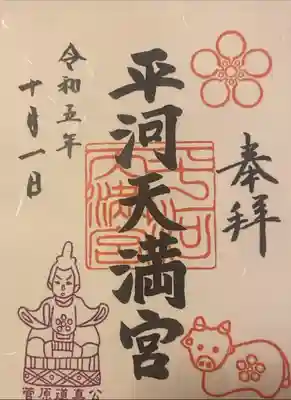 奉拝
平河天満宮
平河天満宮
令和五年
十月一日
菅原道真公